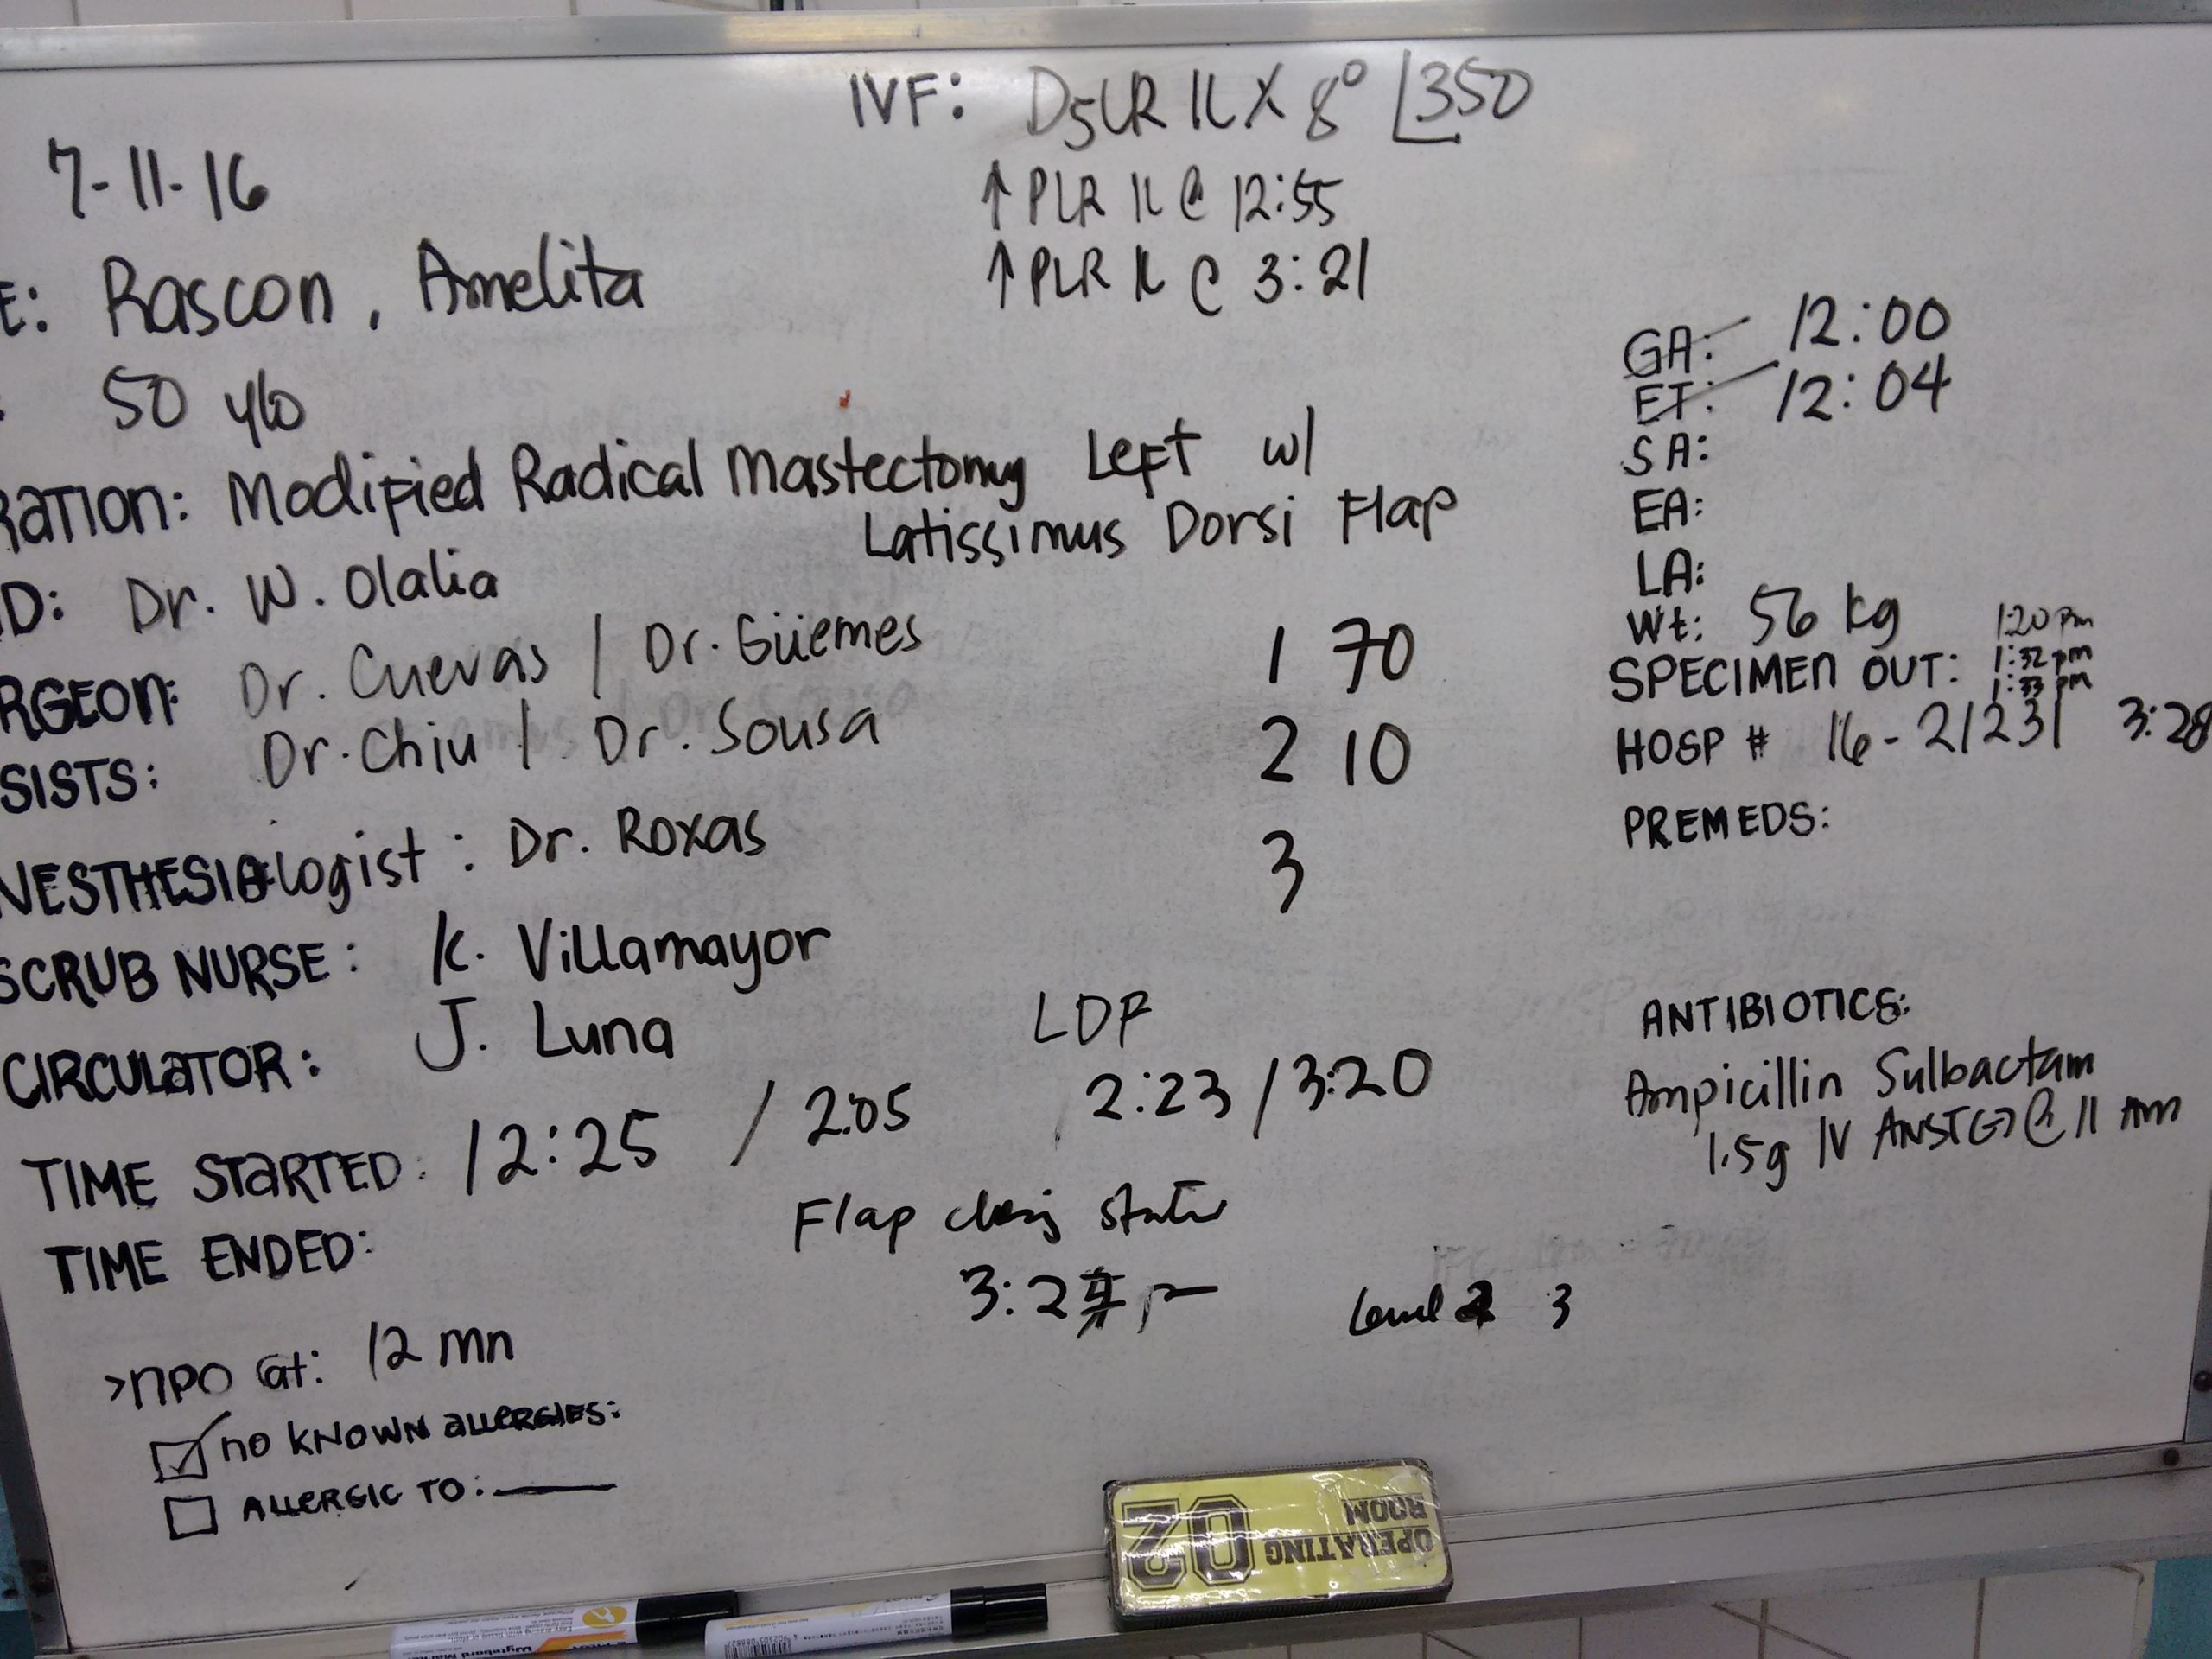 IVF: D5LR 1L X 8° 350
7-11-16
↑ PLR 1L @ 12:55
↑ PLR 1L @ 3:21
E: Rascon, Amelita
50 y/o
GA: 12:00
ET: 12:04
SA:
EA:
LA:
RATION: Modified Radical Mastectomy Left w/
Latissimus Dorsi Flap
D: Dr. W. Olalia
RGEON: Dr. Cuevas / Dr. Güemes
SISTS: Dr. Chiu / Dr. Sousa
1 70
2 10
3
Wt: 56 kg
SPECIMEN OUT: 1:20 pm
1:32 pm
1:33 pm
3:28
HOSP # 16-21231
PREMEDS:
NESTHESIOlogist: Dr. Roxas
SCRUB NURSE: K. Villamayor
CIRCULATOR: J. Luna
LDF
TIME STARTED: 12:25 / 2:05 2:23 / 3:20
TIME ENDED:
Flap
3:2
3
ANTIBIOTICS:
Ampicillin Sulbactam
1.5g IV ANST(-) @ 11 Am
>NPO at: 12 mn
NO KNOWN ALLERGIES:
ALLERGIC TO:
OPERATING
ROOM
02